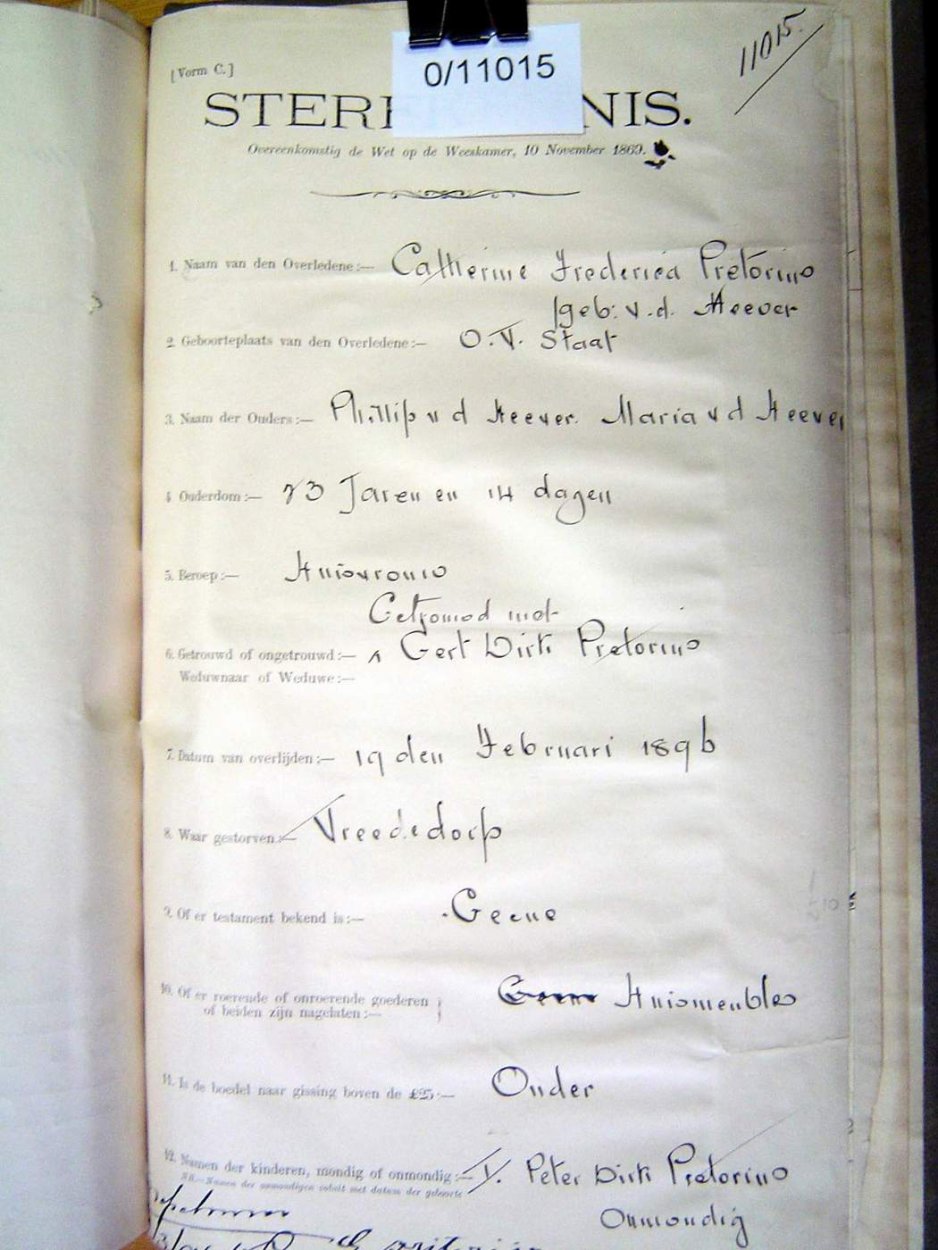 11015.
[Vorm C.]
0/11015
STERF NIS.
Overeenkomstig de Wet op de Weeskamer, 10 November 1869.
1. Naam van den Overledene:— Catherine Frederica Pretorius
geb: v.d. Heever
2. Geboorteplaats van den Overledene:— O.V. Staat
3. Naam der Ouders:— Phillip v d Heever. Maria v d Heever
4 Ouderdom:— 23 Jaren en 14 dagen
5. Beroep:— Huisvrouw
Getrouwd met
6. Getrouwd of ongetrouwd:— Gert Dirk Pretorius
Weduwnaar of Weduwe:—
7. Datum van overlijden:— 19 den Februari 1896
8. Waar gestorven:— Vreededorp
9. Of er testament bekend is:— Geene
10. Of er roerende of onroerende goederen Huismeubles
of beiden zijn nagelaten:—
11. Is de boedel naar gissing boven de £25:— Onder
12. Namen der kinderen, mondig of onmondig:— I. Peter Dirk Pretorius
NB.—Namen der onmondigen voluit met datum der geboorte
Onmondig